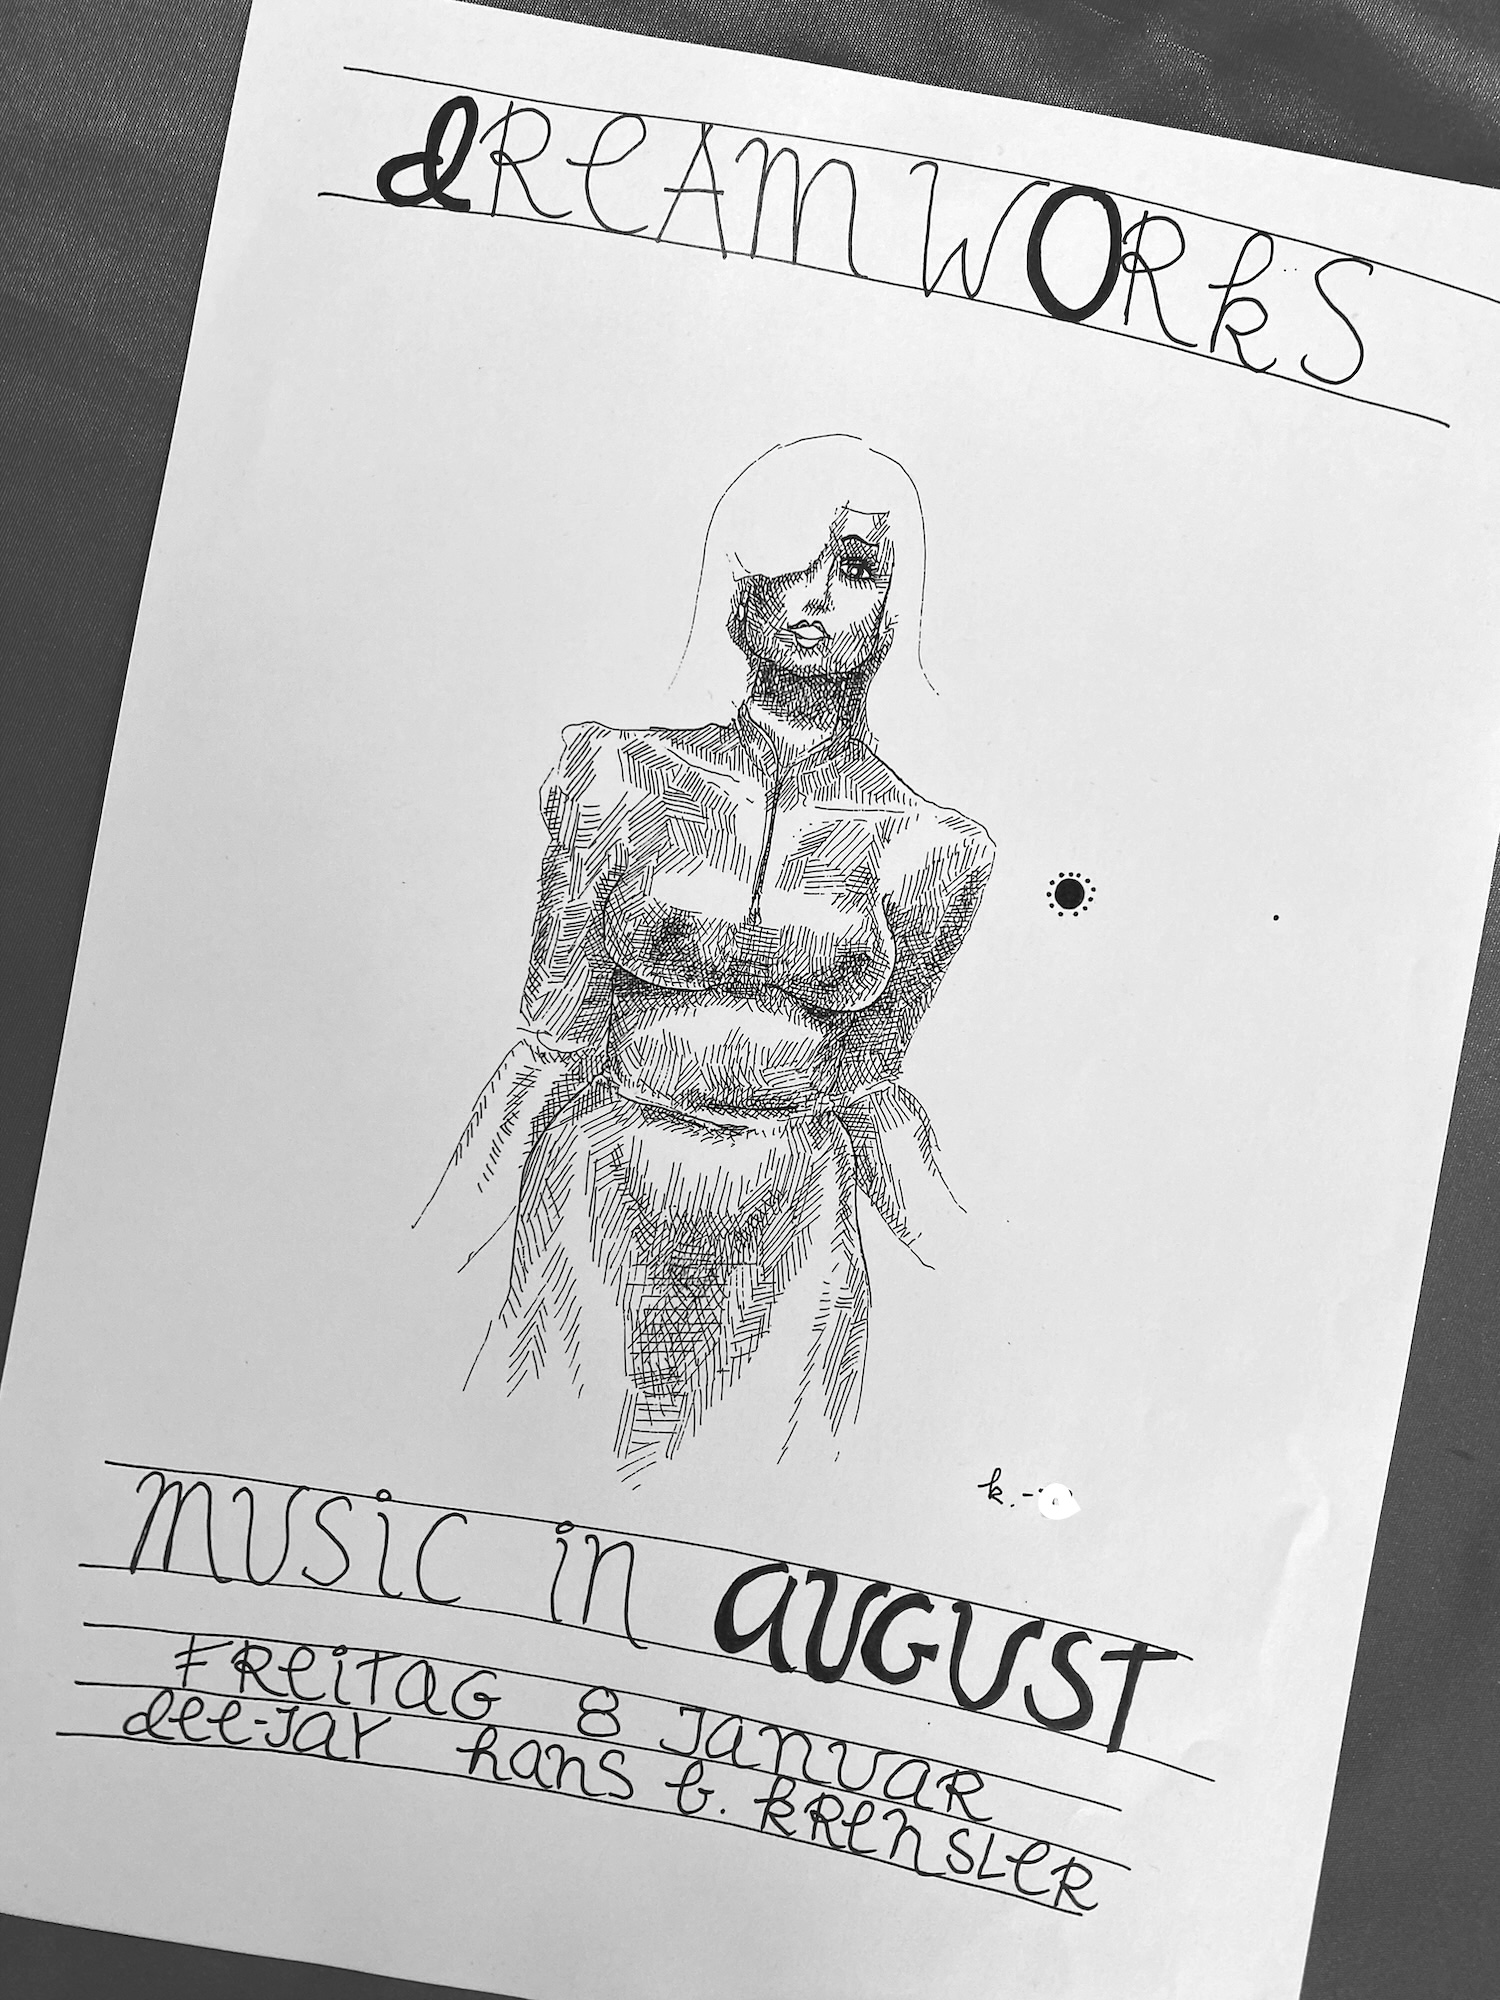 dReAMWORkS
k.
MUSiC in aUGUST
FReiTaG 8 JanUaR
dee-JaY hans b. kRenSLeR